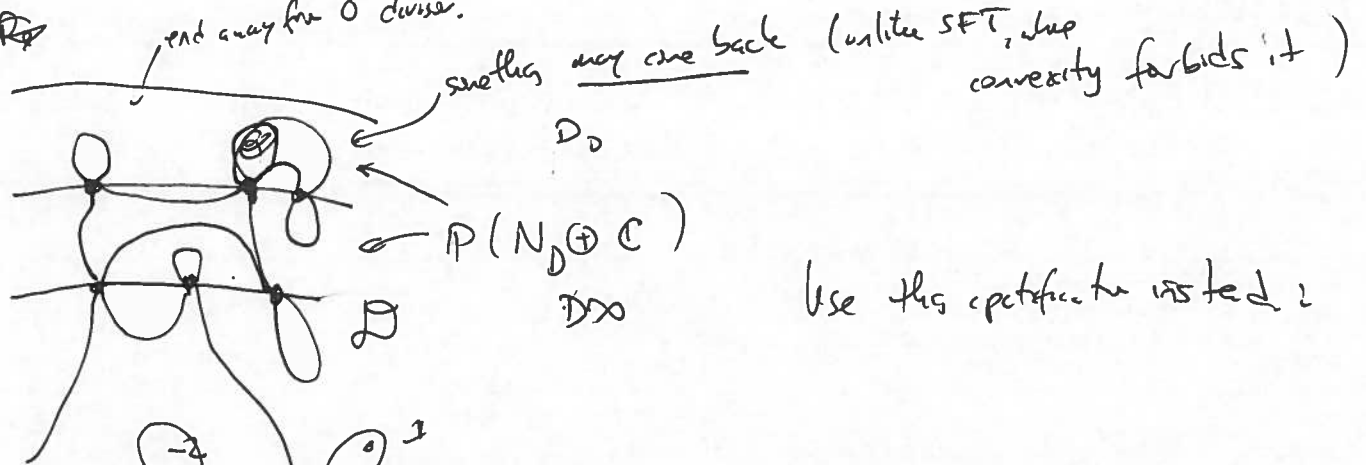 end away from 0 divisor.
something may come back (unlike SFT, where
convexity forbids it)
D₀
P(N_D ⊕ C)
D∞
D
Use this instead :
-2
1